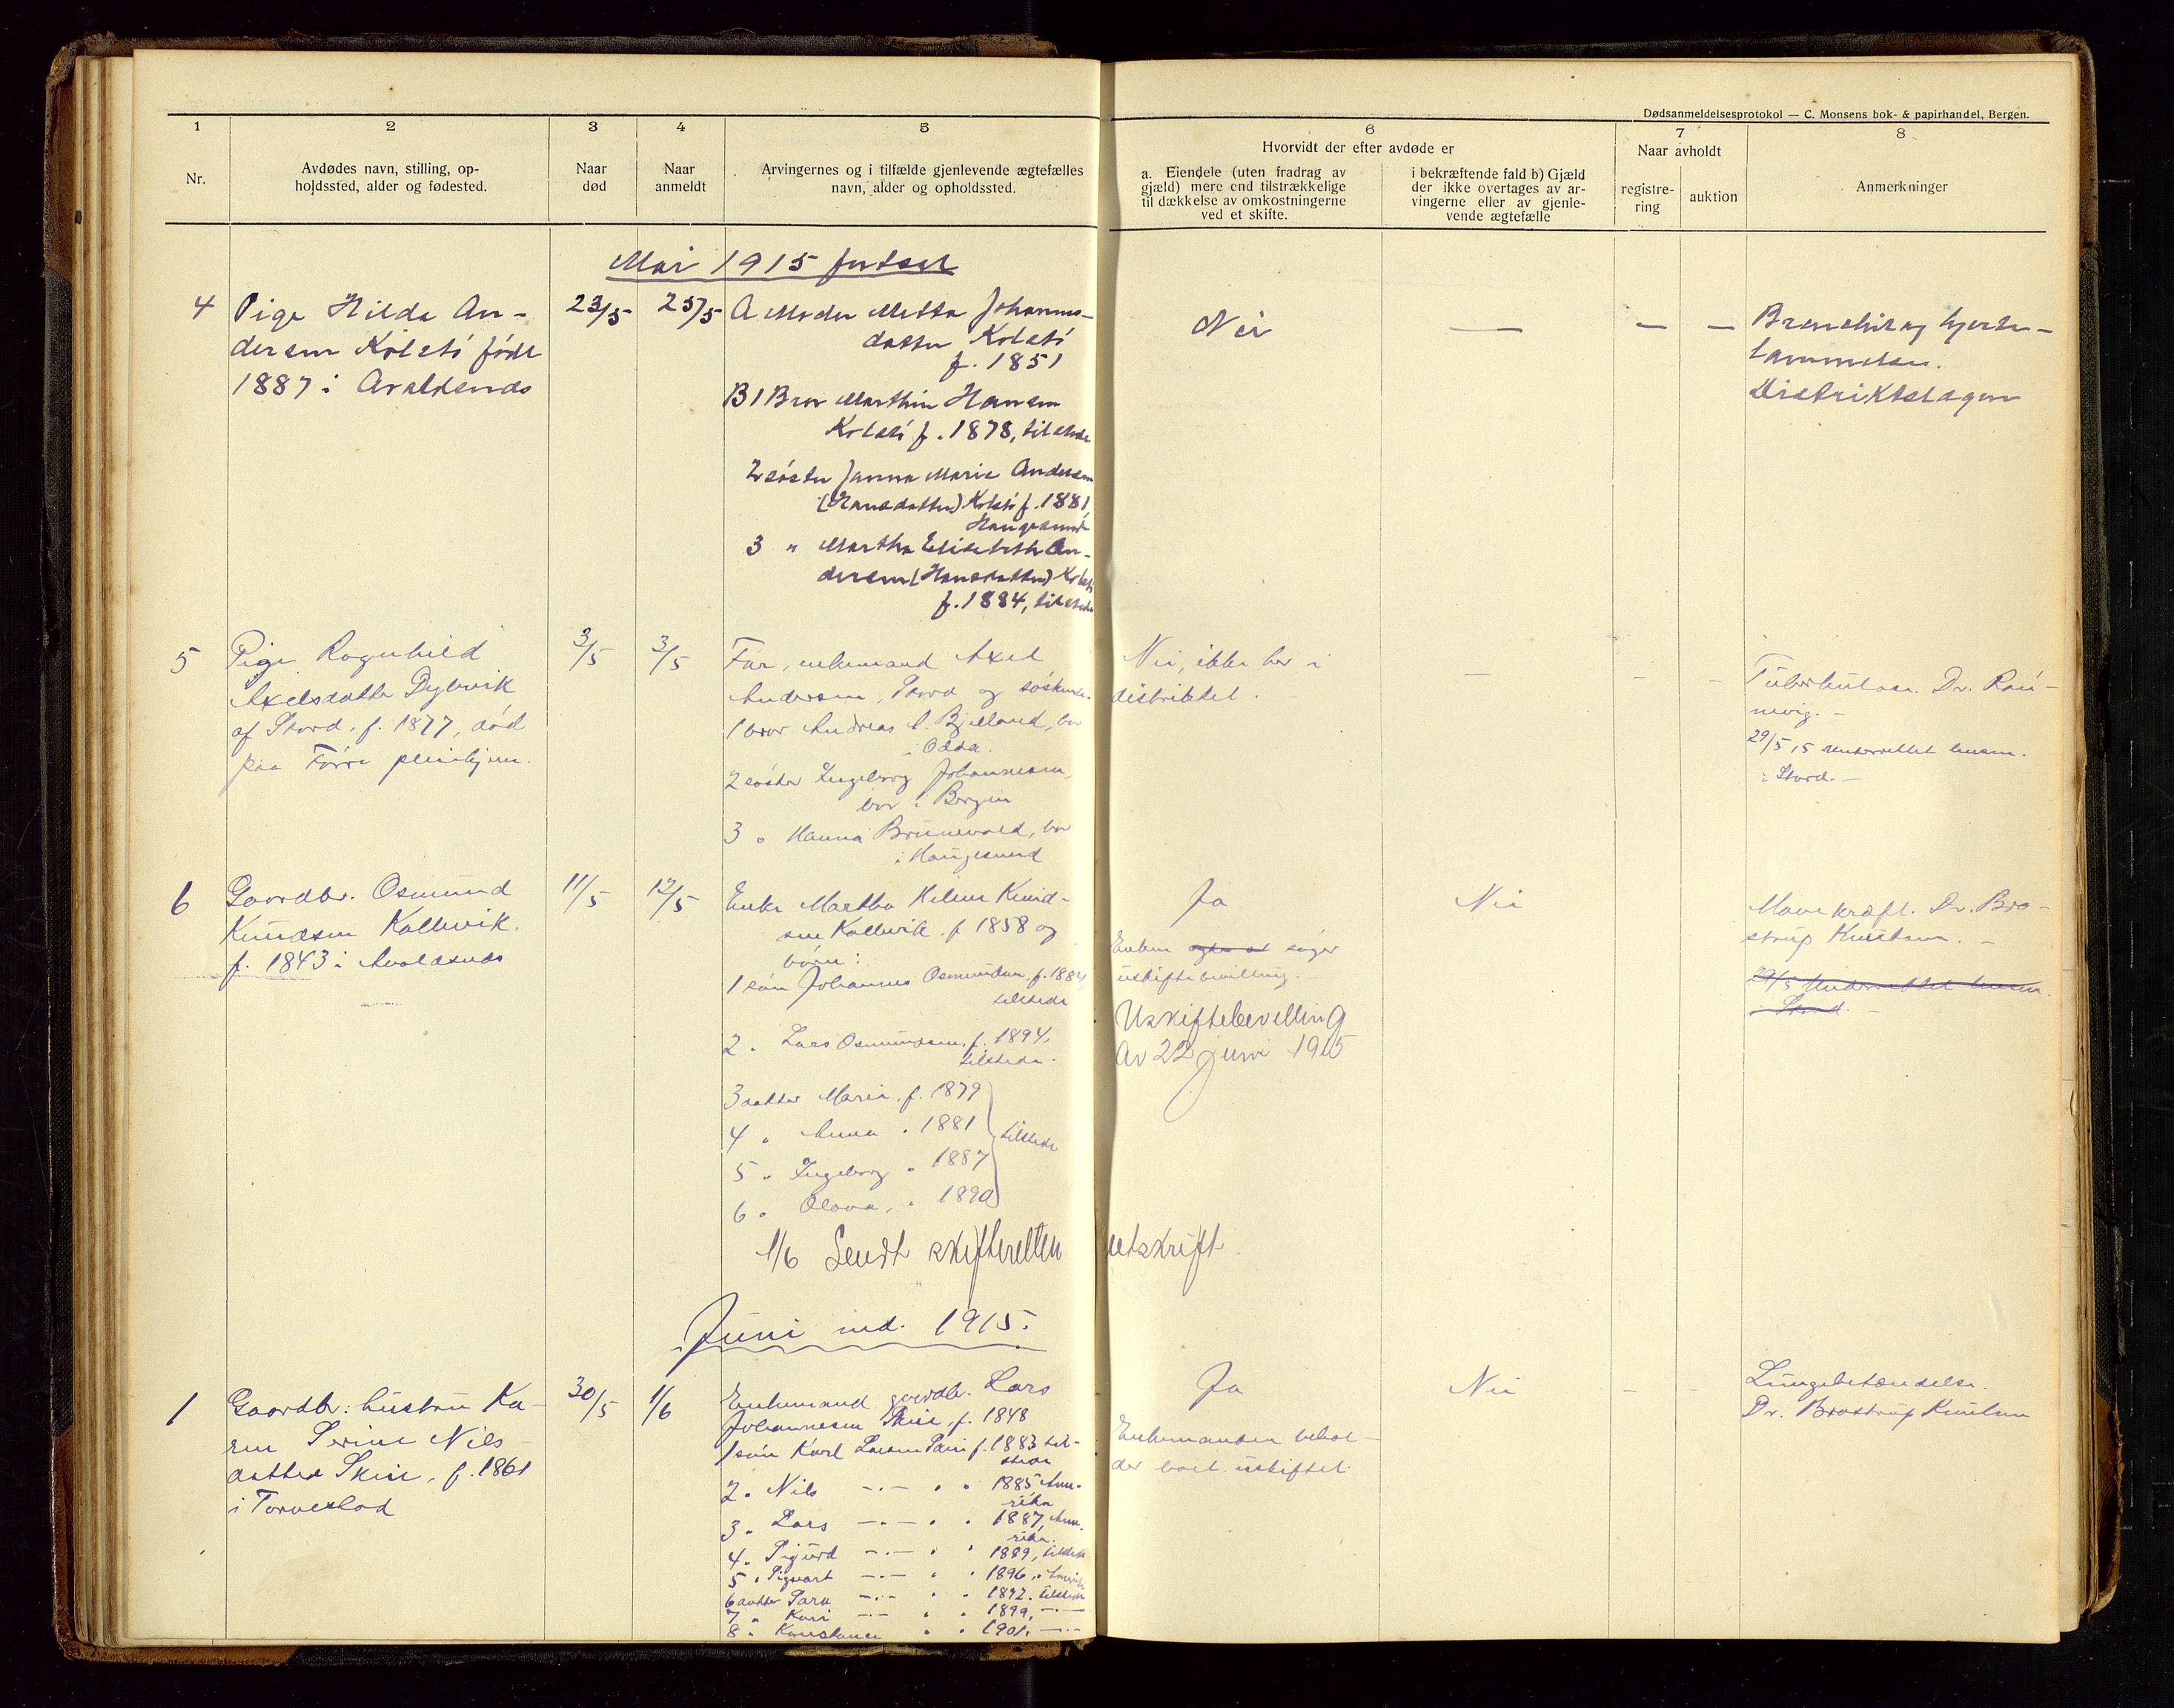 Dødsanmeldelsesprotokol — C. Monsens bok- & papirhandel, Bergen.
1 2 3 4 5 6 7 8
Nr.
Avdødes navn, stilling, op-
holdssted, alder og fødested.
Naar
død
Naar
anmeldt
Arvingernes og i tilfælde gjenlevende ægtefælles
navn, alder og opholdssted.
Hvorvidt der efter avdøde er
a. Eiendele (uten fradrag av
gjæld) mere end tilstrækkelige
til dækkelse av omkostningerne
ved et skifte.
i bekræftende fald b) Gjæld
der ikke overtages av ar-
vingerne eller av gjenle-
vende ægtefælle
Naar avholdt
registre-
ring
auktion
Anmerkninger
Mai 1915 fortsat
4
Pige Hilda An-
dersen Kolstö född
1887 i Avaldsnes
23/5
25/5
A Moder Metta Johannes-
datter Kolstö
f. 1851
B 1 Bror Marthin Hansen
Kolstö f. 1878, tilstede
2 söster Janna Marie Andersen
(Hansdatter) Kolstö f. 1881,
Haugesund
3 " Martha Elisabeth An-
dersen (Hansdatter) Kolstö
f. 1884, tilstede
Nei
—
— —
Bronchit og hjerte-
lammelse.
Distriktslægen
5
Pige Ragnhild
Axelsdatter Dybvik
af Stord, f. 1877, död
paa Förre pleiehjem.
3/5
3/5
Far, enkemand Axel
Andersen, Stord og söskende.
1 bror Andreas A. Bjelland, bor
i Odda.
2 söster Ingeborg Johannesen,
bor i Bergen
3 " Hanna Brunevold, bor
i Haugesund
Nei, ikke her i
distriktet.
—
- -
Tuberkulose. Dr. Rön-
nevig. -
29/5 15 Underrettet lensm.
i Stord. -
6
Gaardbr. Osmund
Knudsen Kallevik.
f. 1843 i Avaldsnes
11/5
12/5
Enke Martha Helene Knud-
sen Kallevik f. 1858 og
börn:
1 sön Johannes Osmundsen, f. 1884,
tilstede
2 " Lars Osmundsen, f. 1894,
tilstede.
3 datter Marie, f. 1879
4 " Anna " 1881 tilstede
5 " Ingeborg " 1887
6 " Olava, " 1890
Ja
Enken söger
uskiftebevilling. -
Uskiftebevilling
Av 22 juni 1915
Nei
Mavekræft. Dr. Bro-
strup Knudsen. -
29/5 Underrettet lensm.
i Stord. -
1/6 Sendt skifteretten utskrift.
Juni md. 1915.
1
Gaardbr. hustru Ka-
ren Serine Nils-
datter Skeie, f. 1861
i Torvestad
30/5
1/6
Enkemand gaardbr. Lars
Johannesen Skeie, f. 1848
1 sön Karl Larsen Skeie f. 1883 til-
stede
2 " Nils —"— " " 1885 Ame-
rika
3 " Lars —"— " " 1887, Ame-
rika.
4 " Sigurd —"— " " 1889, tilstede
5 " Sigvart —"— " " 1896, Amerika
6 datter Sara —"— " " 1892. tilstede
7 " Kari —"— " " 1899, —"—
8 " Konstance " " 1901. —"—
Ja
Enkemanden behol-
der boet uskiftet.
Nei
- -
Lungebetændelse.
Dr. Brostrup Knudsen